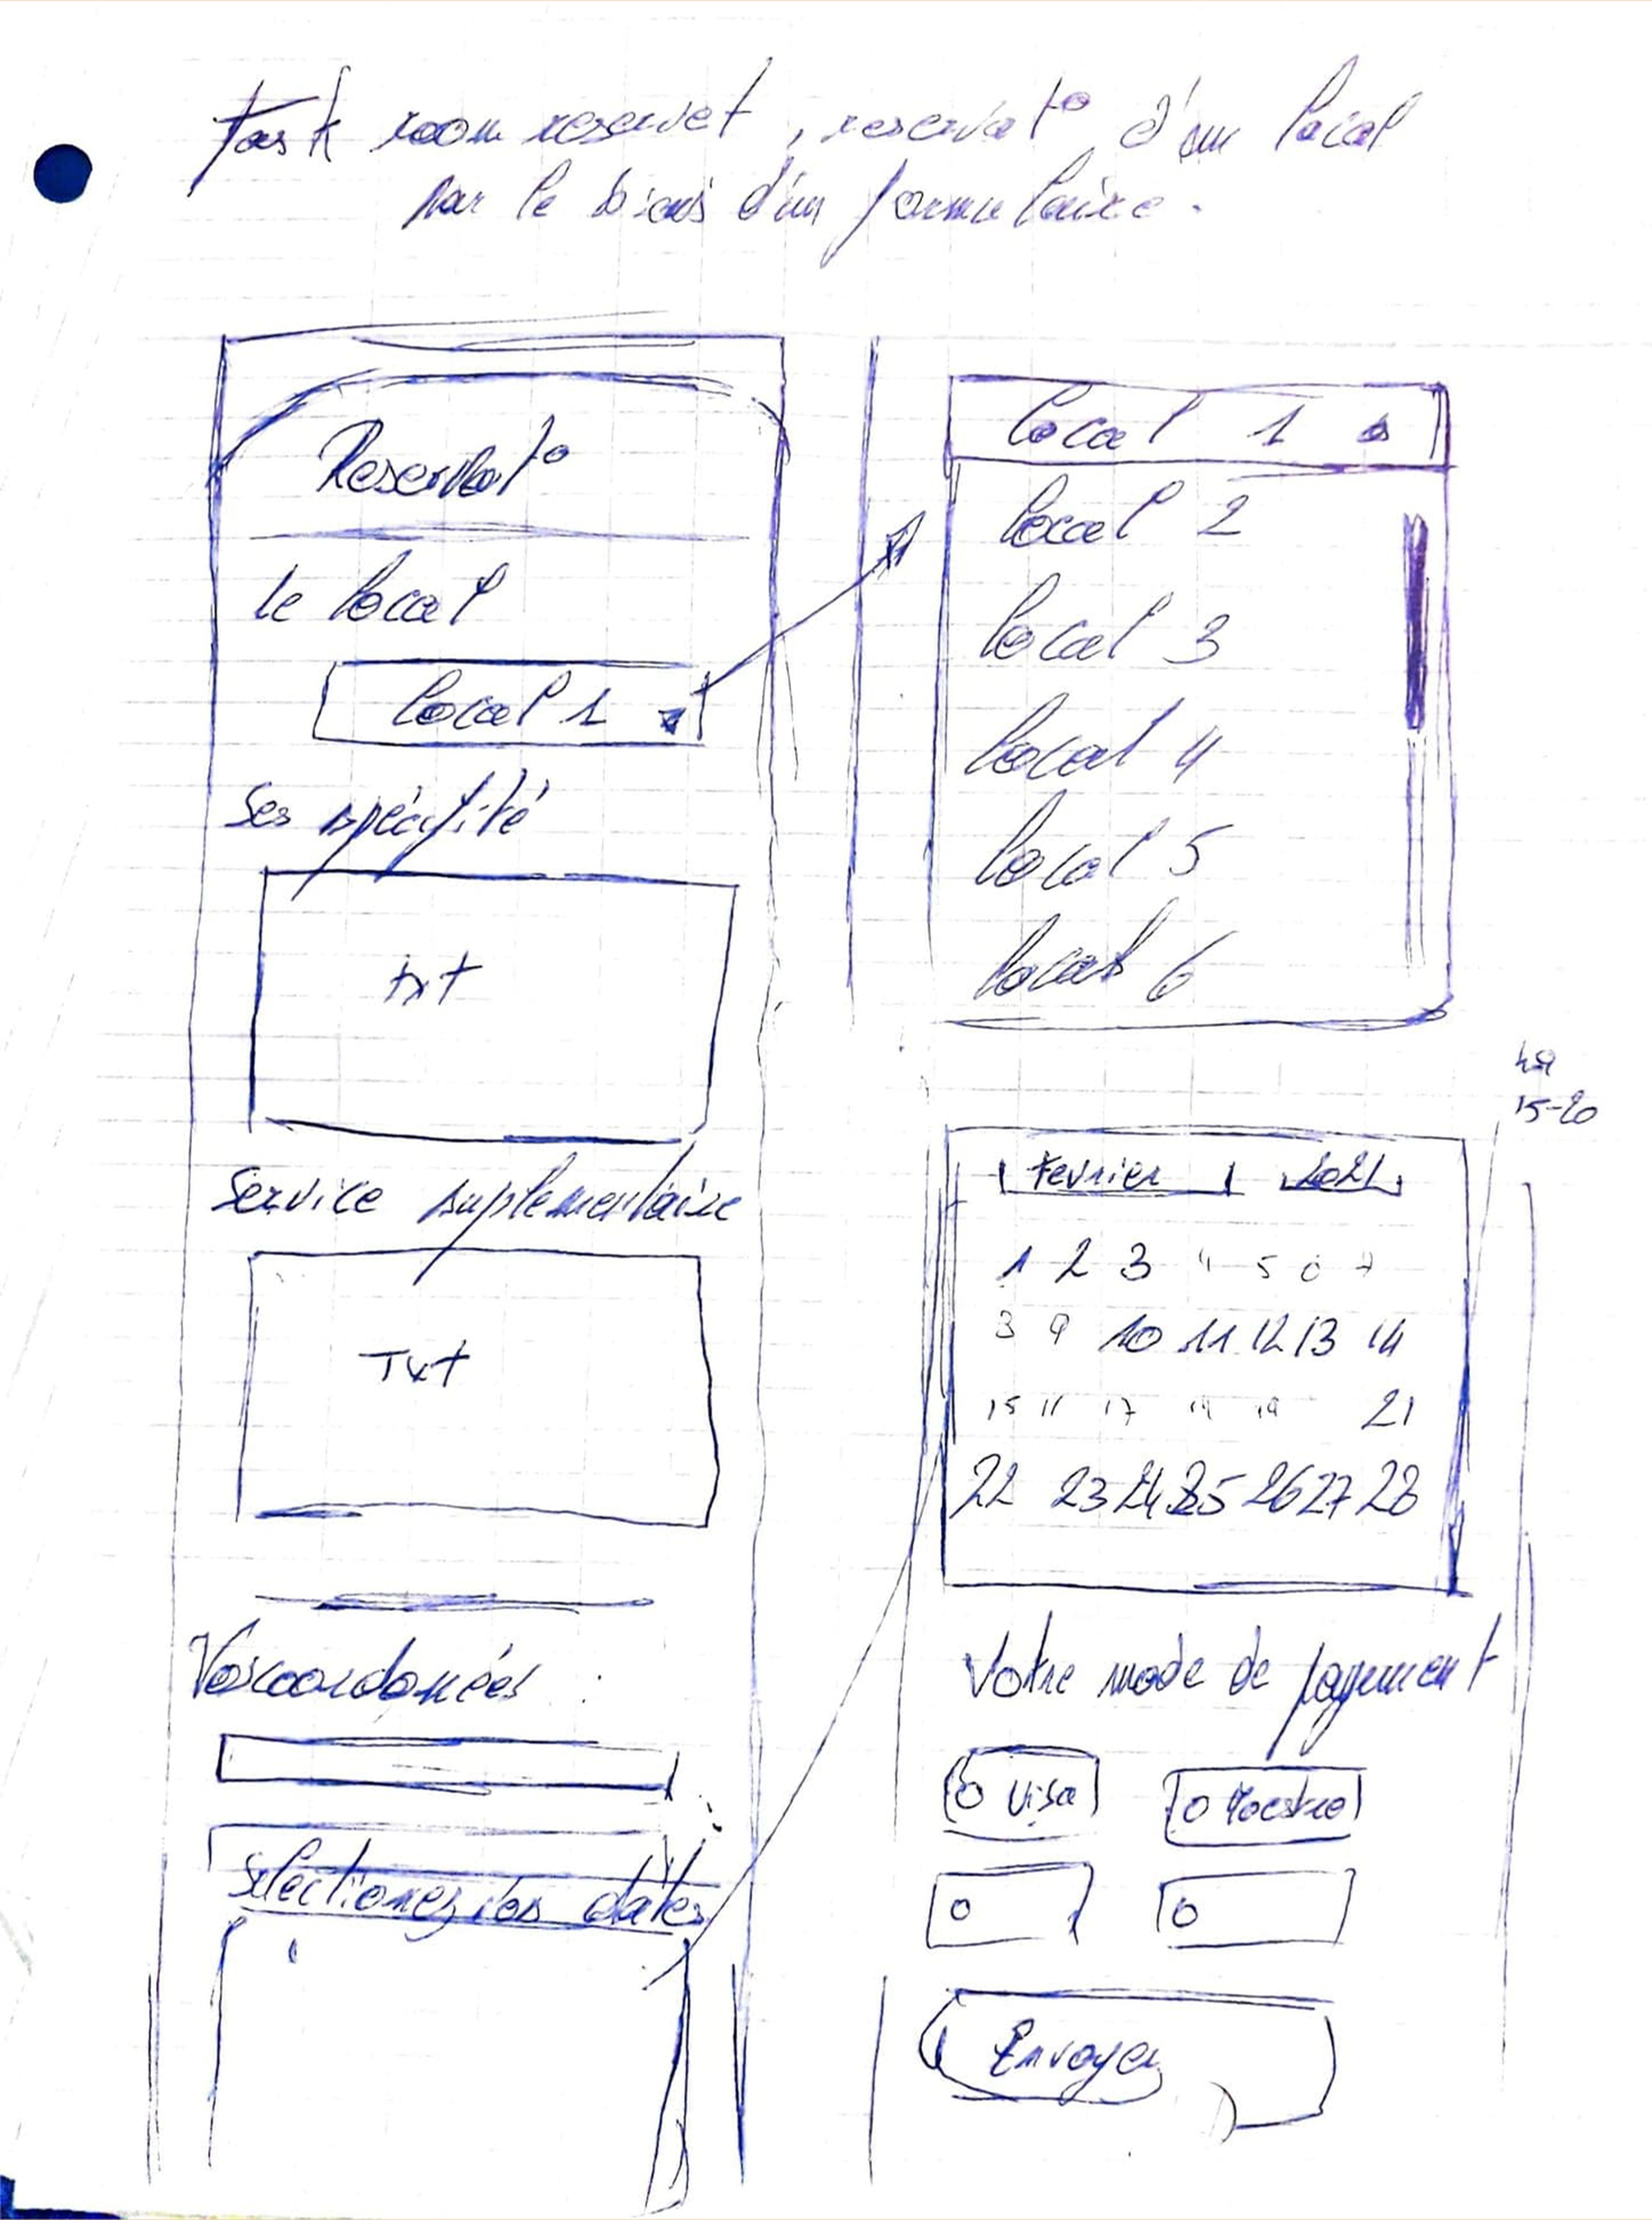 Task room reservet, reservat° d'un local
par le biais d'un formulaire.
Reservat°
Le local
local 1
Ses spécifité
txt
Service suplementaire
Txt
Voscoordonées :
Selectionez vos dates
local 1
local 2
local 3
local 4
local 5
local 6
15-20
Fevrier 2021
1 2 3 4 5 6 7
8 9 10 11 12 13 14
15 16 17 18 19 21
22 23 24 25 26 27 28
Votre mode de payement
O Visa O Maestro
O O
Envoyer